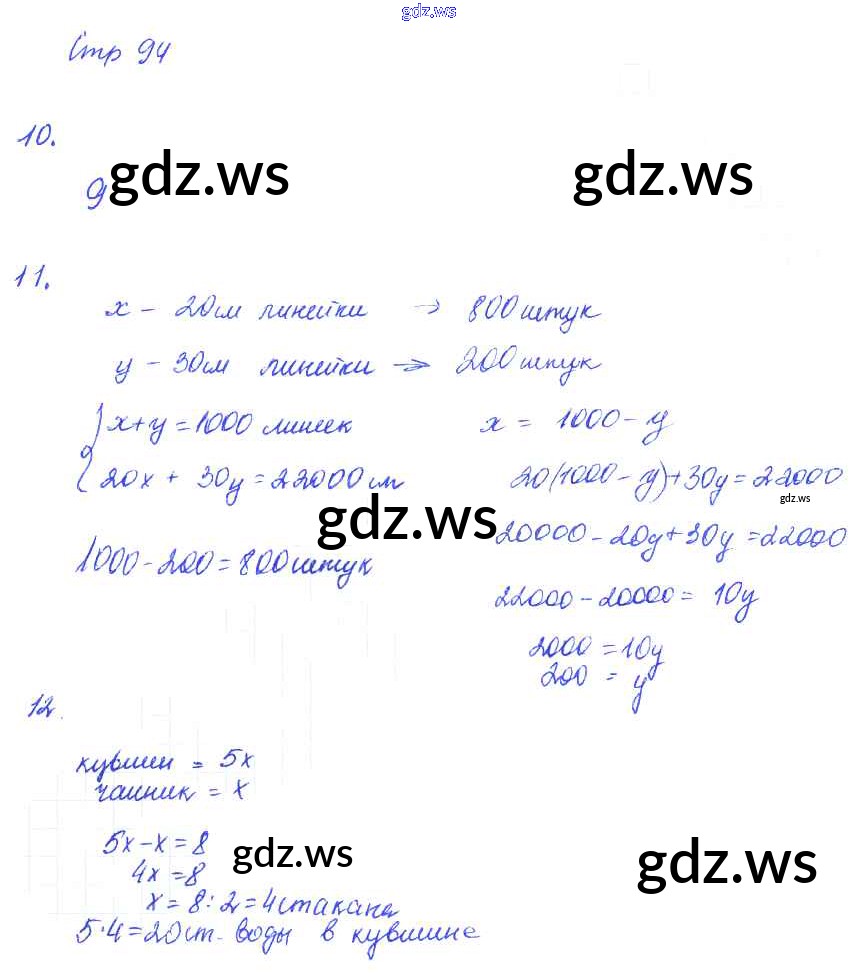 gdz.ws
Стр 94
10.
9
gdz.ws gdz.ws
11.
x - 20см линейки → 800 штук
y - 30см линейки → 200 штук
x+y = 1000 линеек x = 1000 - y
20x + 30y = 22000 см 20(1000 - y)+30y = 22000
gdz.ws
gdz.ws
20000 - 20y+30y = 22000
1000 - 200 = 800 штук
22000 - 20000 = 10y
2000 = 10y
200 = y
12.
кувшин = 5x
чайник = x
5x-x = 8
gdz.ws gdz.ws
4x = 8
x = 8:2 = 4 стакана
5·4 = 20 ст. воды в кувшине